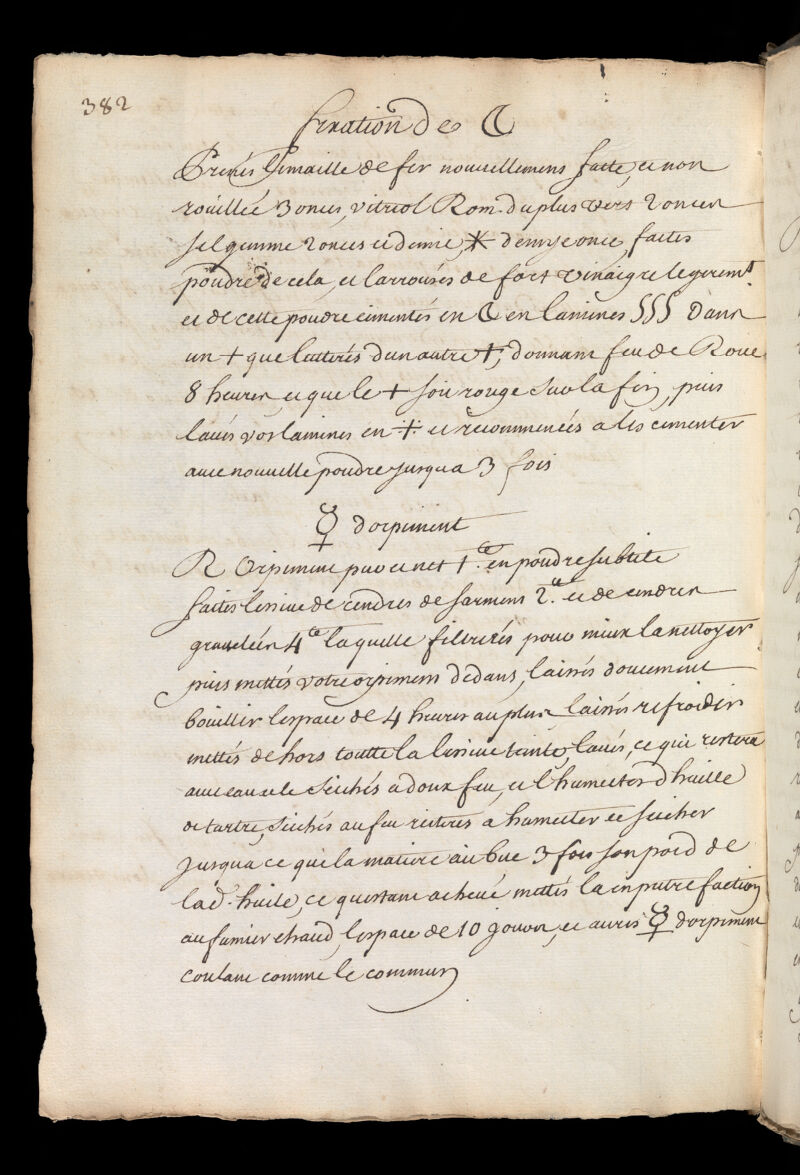 382
fixation de ☾
Prenés Limaille de fer nouuellement faitte, et non
rouillée 3 onces, vitriol Rom. du plus vert 2 onces
sel gemme 2 onces et demie, ✶ demye once, faites
poudre de cela, et larrousés de fort vinaigre legeremt.
et de cette poudre cimentés en ☾ en lamines SSS dans
un + que lutterés dun autre +, donnant feu de Roue
8 heures, et que le + soit rouge sur la fin, puis
laués vos lamines en ·+· et recommencés a les cimenter
auec nouuelle poudre jusqua 3 fois
☿ dorpiment
R Orpiment pur et net 1.ce en poudre subtile
faites lessiue de cendres de sarment 2.ce et de cendres
grauelées 4ce laquelle filtrerés pour mieux la nettoyer
puis mettés votre orpiment dedans, laissés doucement
bouillir lespace de 4 heures au plus, laissés refroidir
mettés dehors toutte la lessiue teinte, laués, ce qui restera
auec eau et le seichés a doux feu, et l'humecter d'huille
de tartre, seichés au feu reiterés a humecter et seicher
jusqua ce que la matiere ait bue 3 fois son poid de
lad. huile, ce questant acheué mettés la en putrefaction
au fumier chaud, lespace de 10 jours, et aurés ☿ dorpiment
coulant comme le commun